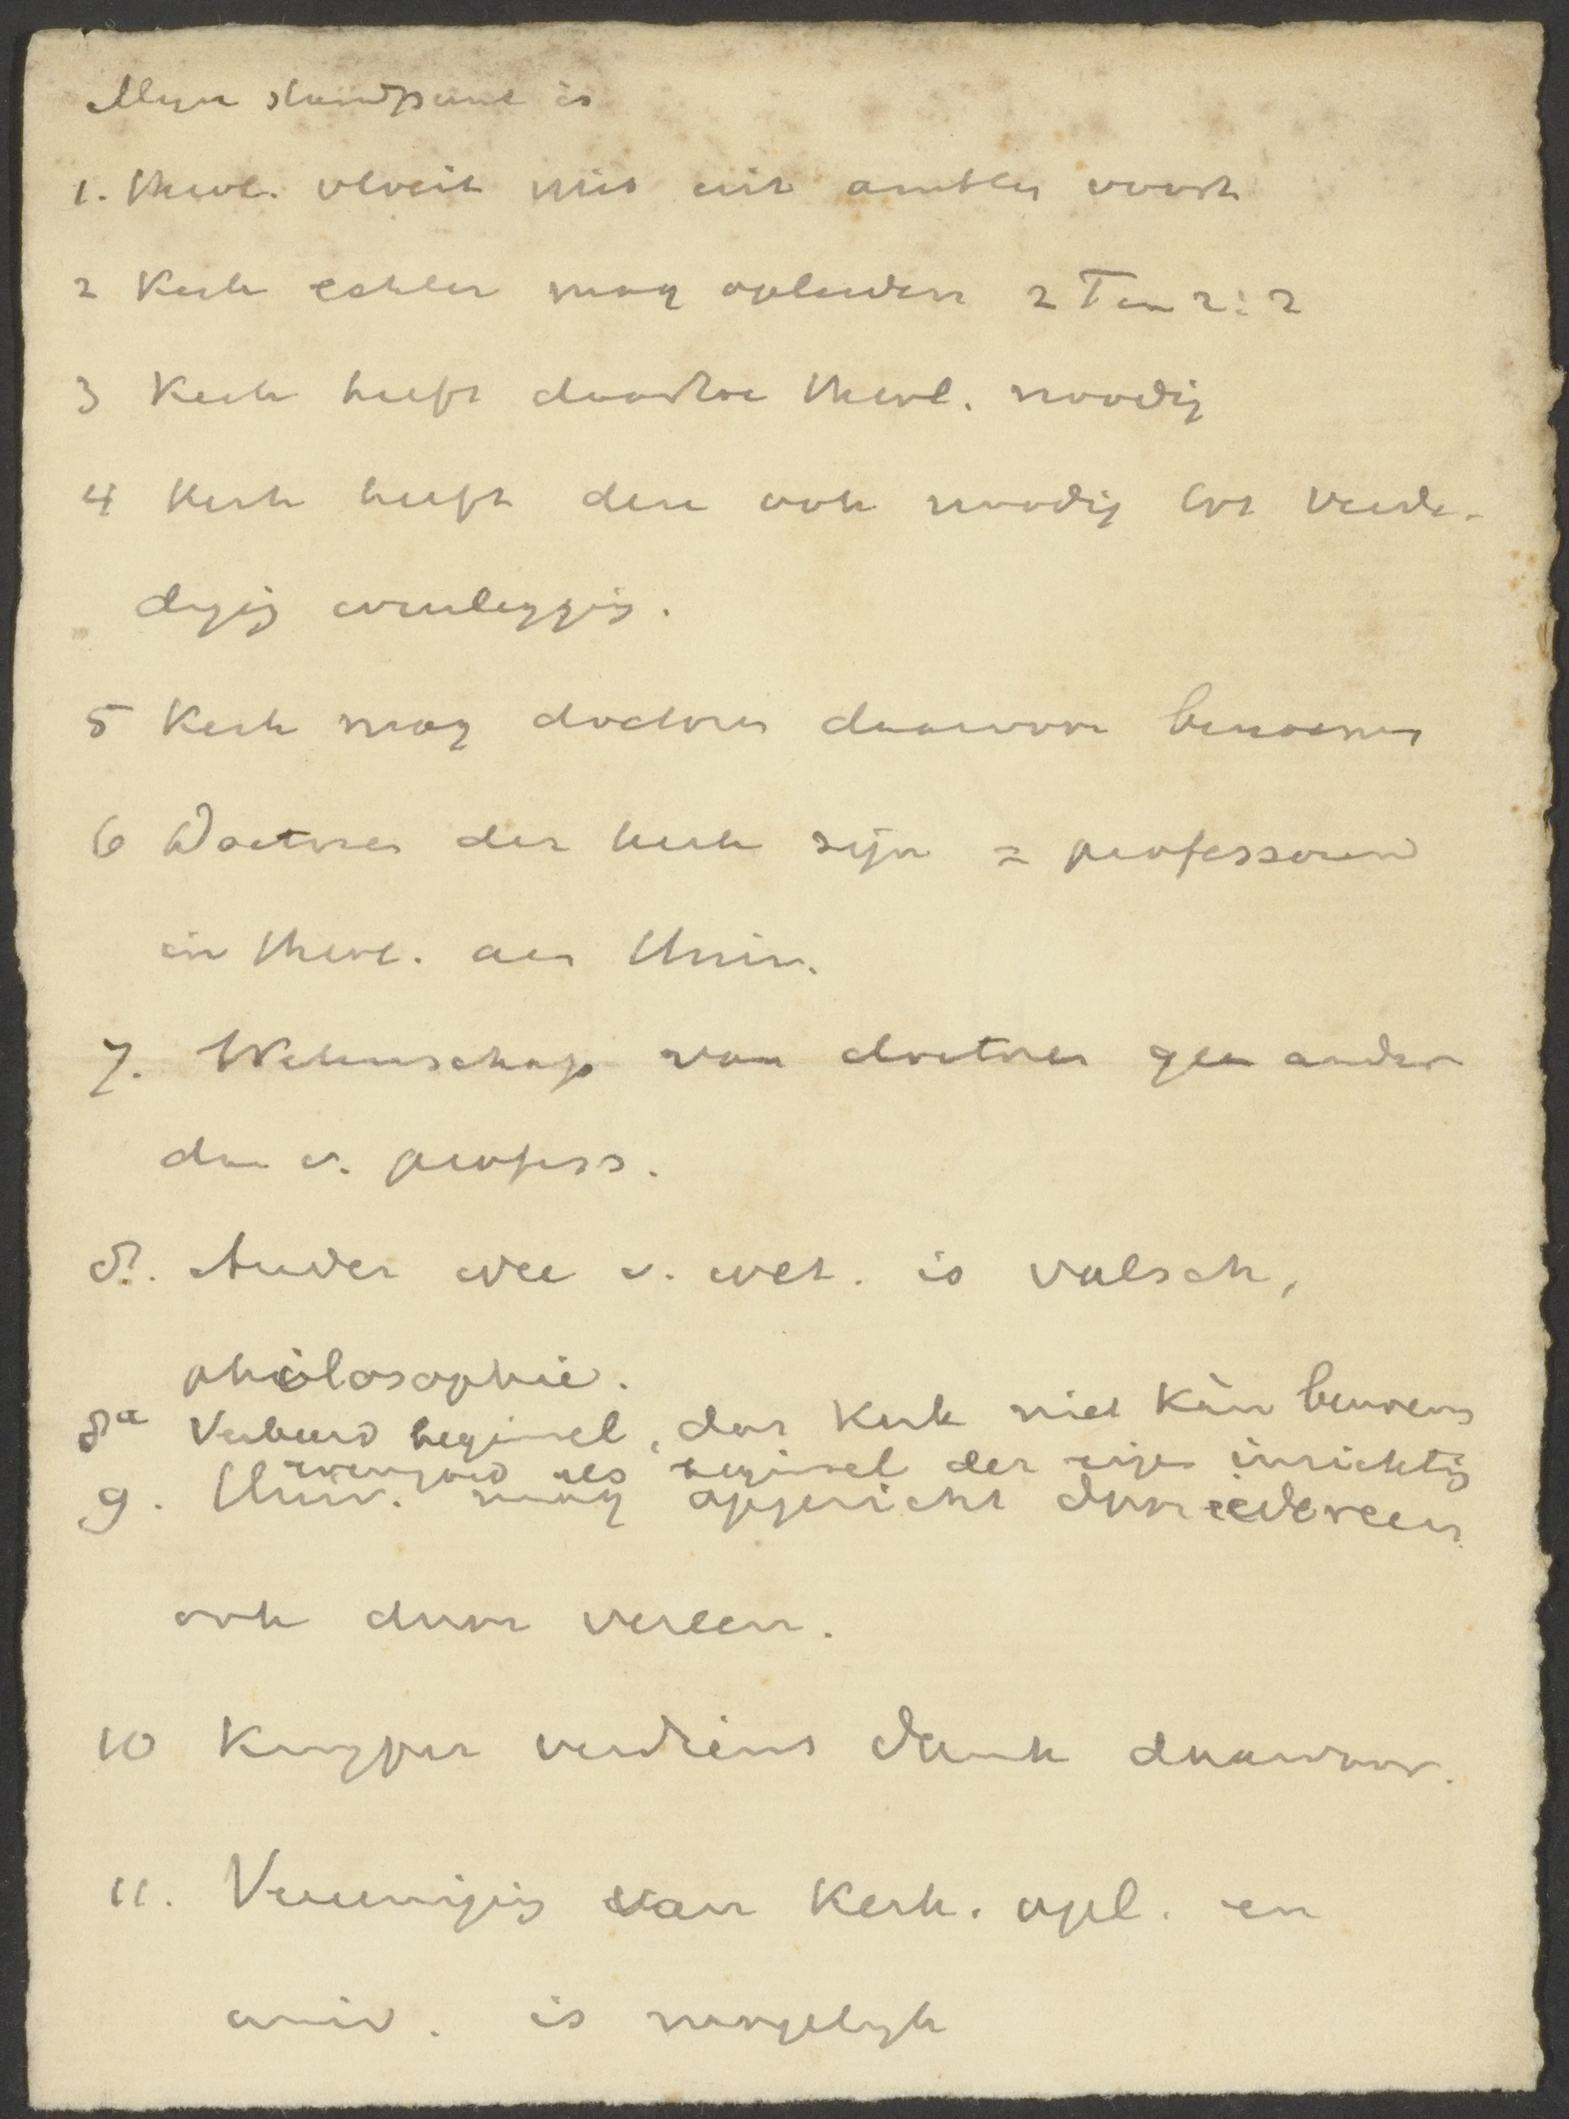 Mijn standpunt is
1. theol. vloeit niet uit ambten voort
2 Kerk echter mag opleiden 2 Tim 2:2
3 Kerk heeft daartoe theol. noodig
4 Kerk heeft deze ook noodig tot verde-
diging wederlegging.
5 Kerk mag doctoren daarvoor benoemen
6 Doctores der kerk zijn = professoren
in theol. aan Univ.
7. Wetenschap van doctores geen ander
dan v. profess.
8. Ander idee v. wet. is valsch,
philosophie.
8a Verkeerd beginsel, dat Kerk niet kàn benoemen
evengoed als beginsel der eigen inrichting
9. Univ. mag opgericht door iedereen
ook door vereen.
10 Kuyper verdient dank daarvoor.
11. Vereeniging van Kerk. opl. en
univ. is mogelijk